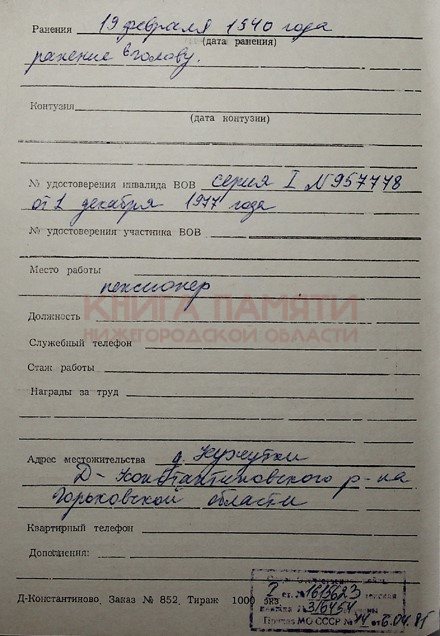 Ранения 19 февраля 1940 года
(дата ранения)
ранение в голову.
Контузия
(дата контузии)
№ удостоверения инвалида ВОВ серия I №957778
от 1 декабря 1977 года
№ удостоверения участника ВОВ
Место работы
пенсионер
КНИГА ПАМЯТИ
Должность
НИЖЕГОРОДСКОЙ ОБЛАСТИ
Служебный телефон
Стаж работы
Награды за труд
Адрес местожительства д. Нужутки
Д-Константиновского р-на
Горьковской области
Квартирный телефон
Дополнения:
2 ст. №1615623
№316454
МО СССР № от 6.04.85
Д-Константиново, Заказ № 852, Тираж 1000 экз.